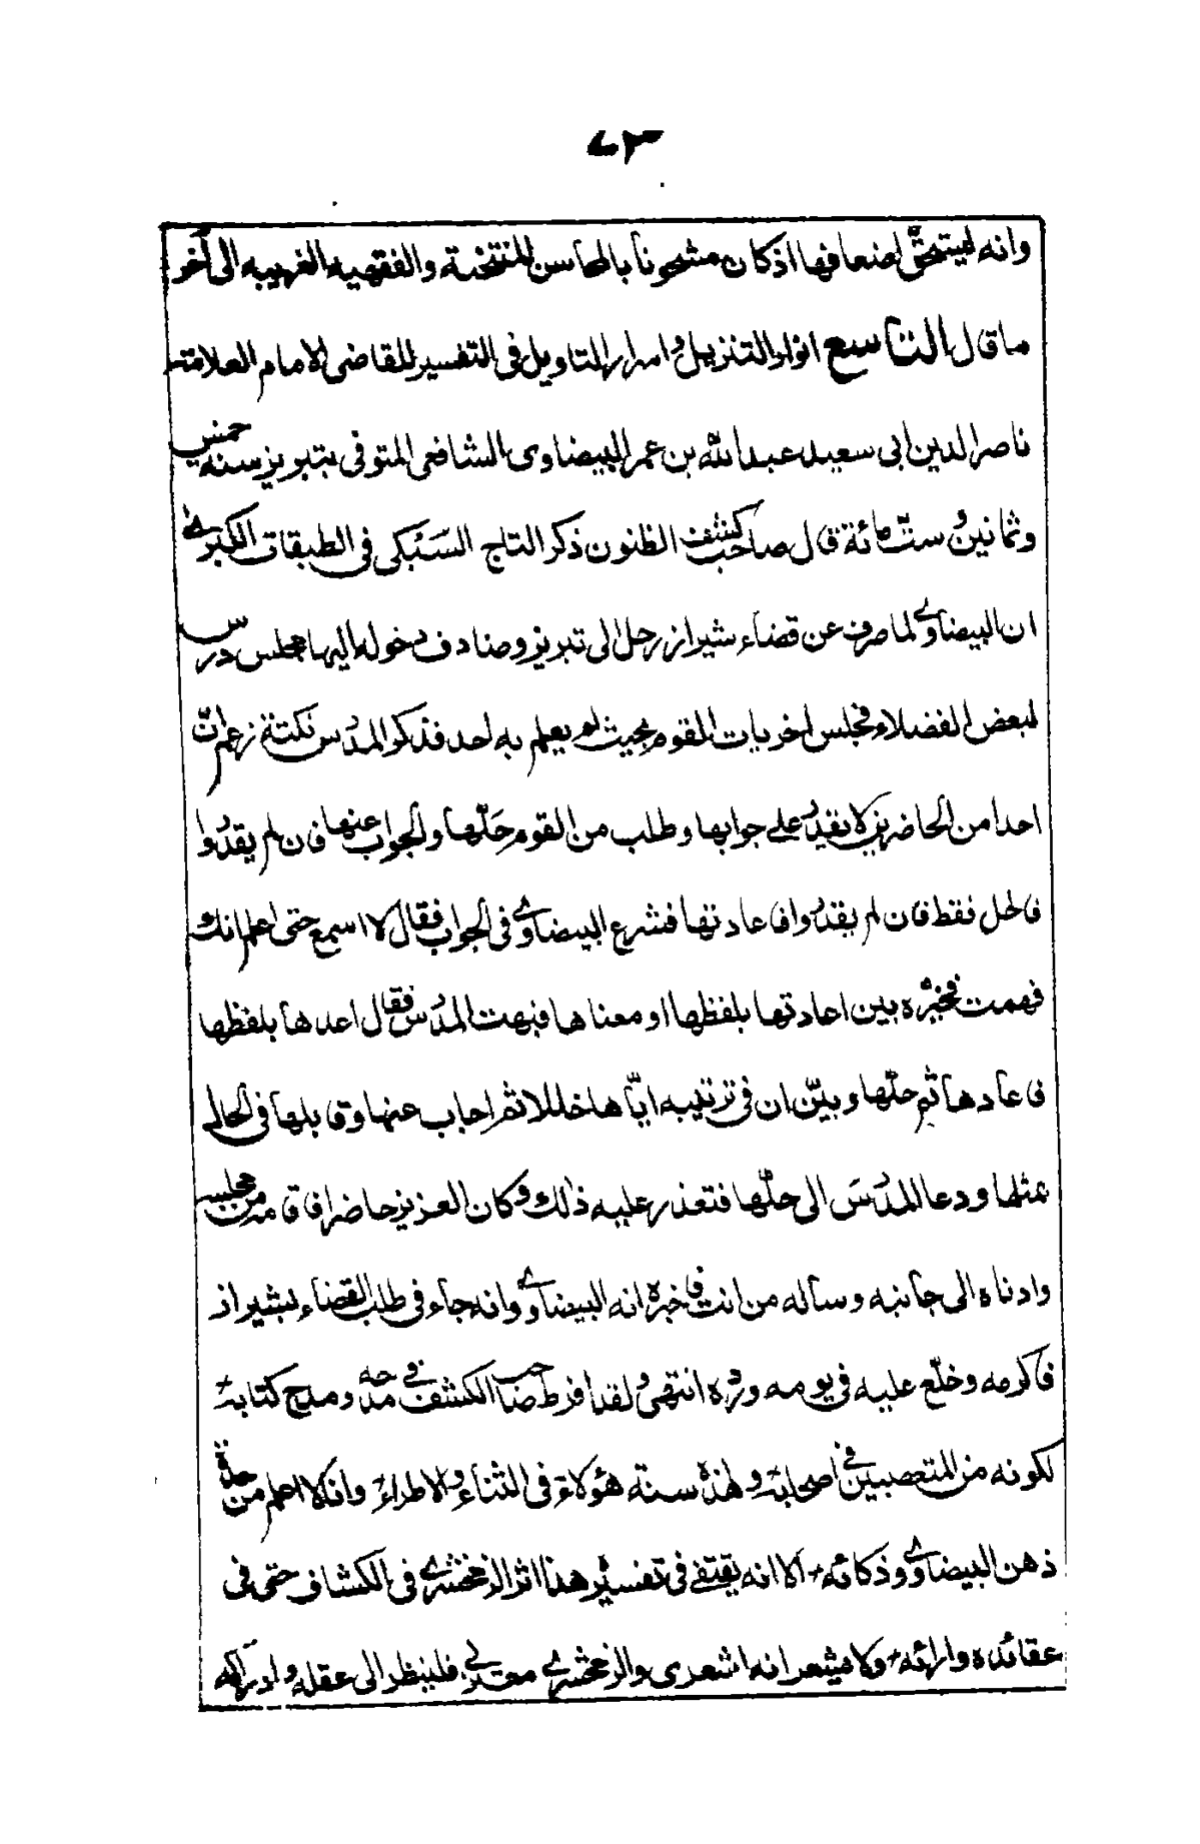 ٧٣
وانه ليستحق اضعافها اذ كان مشحونا بالمحاسن المنتخبة والفقهيه الغريبه الى آخر
ما قال التاسع انوار التنزيل و اسرار التاويل فى التفسير للقاضى الامام العلامة
ناصر الدين ابى سعيد عبد الله بن عمر البيضاوى الشافعى المتوفى بتبريز سنه خمس
وثمانين و ستّ مائة قال صاحب كشف الظنون ذكر التاج السُبكى فى الطبقات الكبرى
ان البيضاوى لما صرف عن قضاء شيراز رحل الى تبريز وصادف دخوله اليها مجلس درس
لبعض الفضلاء فجلس اخريات القوم بحيث لم يعلم به احد فذكر المدرس نكتة زعم انّ
احدا من الحاضرين لا يقدر على جوابها وطلب من القوم حَلّها والجواب عنها فان لم يقدروا
فالحل فقط فان لم يقدروا فاعادتها فشرع البيضاوى فى الجواب فقال لا اسمع حتى اعلم انك
فهمت فخيّره بين اعادتها بلفظها او معناها فبهت المدرس فقال اعدها بلفظها
فاعادها ثم حلّها وبيّن ان فى ترتيبه ايّاها خللا ثم اجاب عنها وقابلها فى الحال
بمثلها ودعا المدرسَ الى حلّها فتعذر عليه ذلك وكان العزيز حاضرا فاقامه من مجلسه
وادناه الى جانبه وساله من انت فاخبره انه البيضاوى وانه جاء فى طلب القضاء بشيراز
فاكرمه وخلّع عليه فى يومه وردّه انتهى و لقد افرط صاحب الكشف فى مدحه ومدح كتابه
لكونه من المتعصبين فى اصحابه و هذه سنة هؤلاء فى الثناء والاطراء وانا لا اعلم من حدة
ذهن البيضاوى وذكائه الا انه يقتفى فى تفسيره هذا اثر الزمخشرى فى الكشاف حتى فى
عقائده وارائه ولا يشعر انه اشعرى والزمخشرى معتزلى فلينظر الى عقله وادراكه